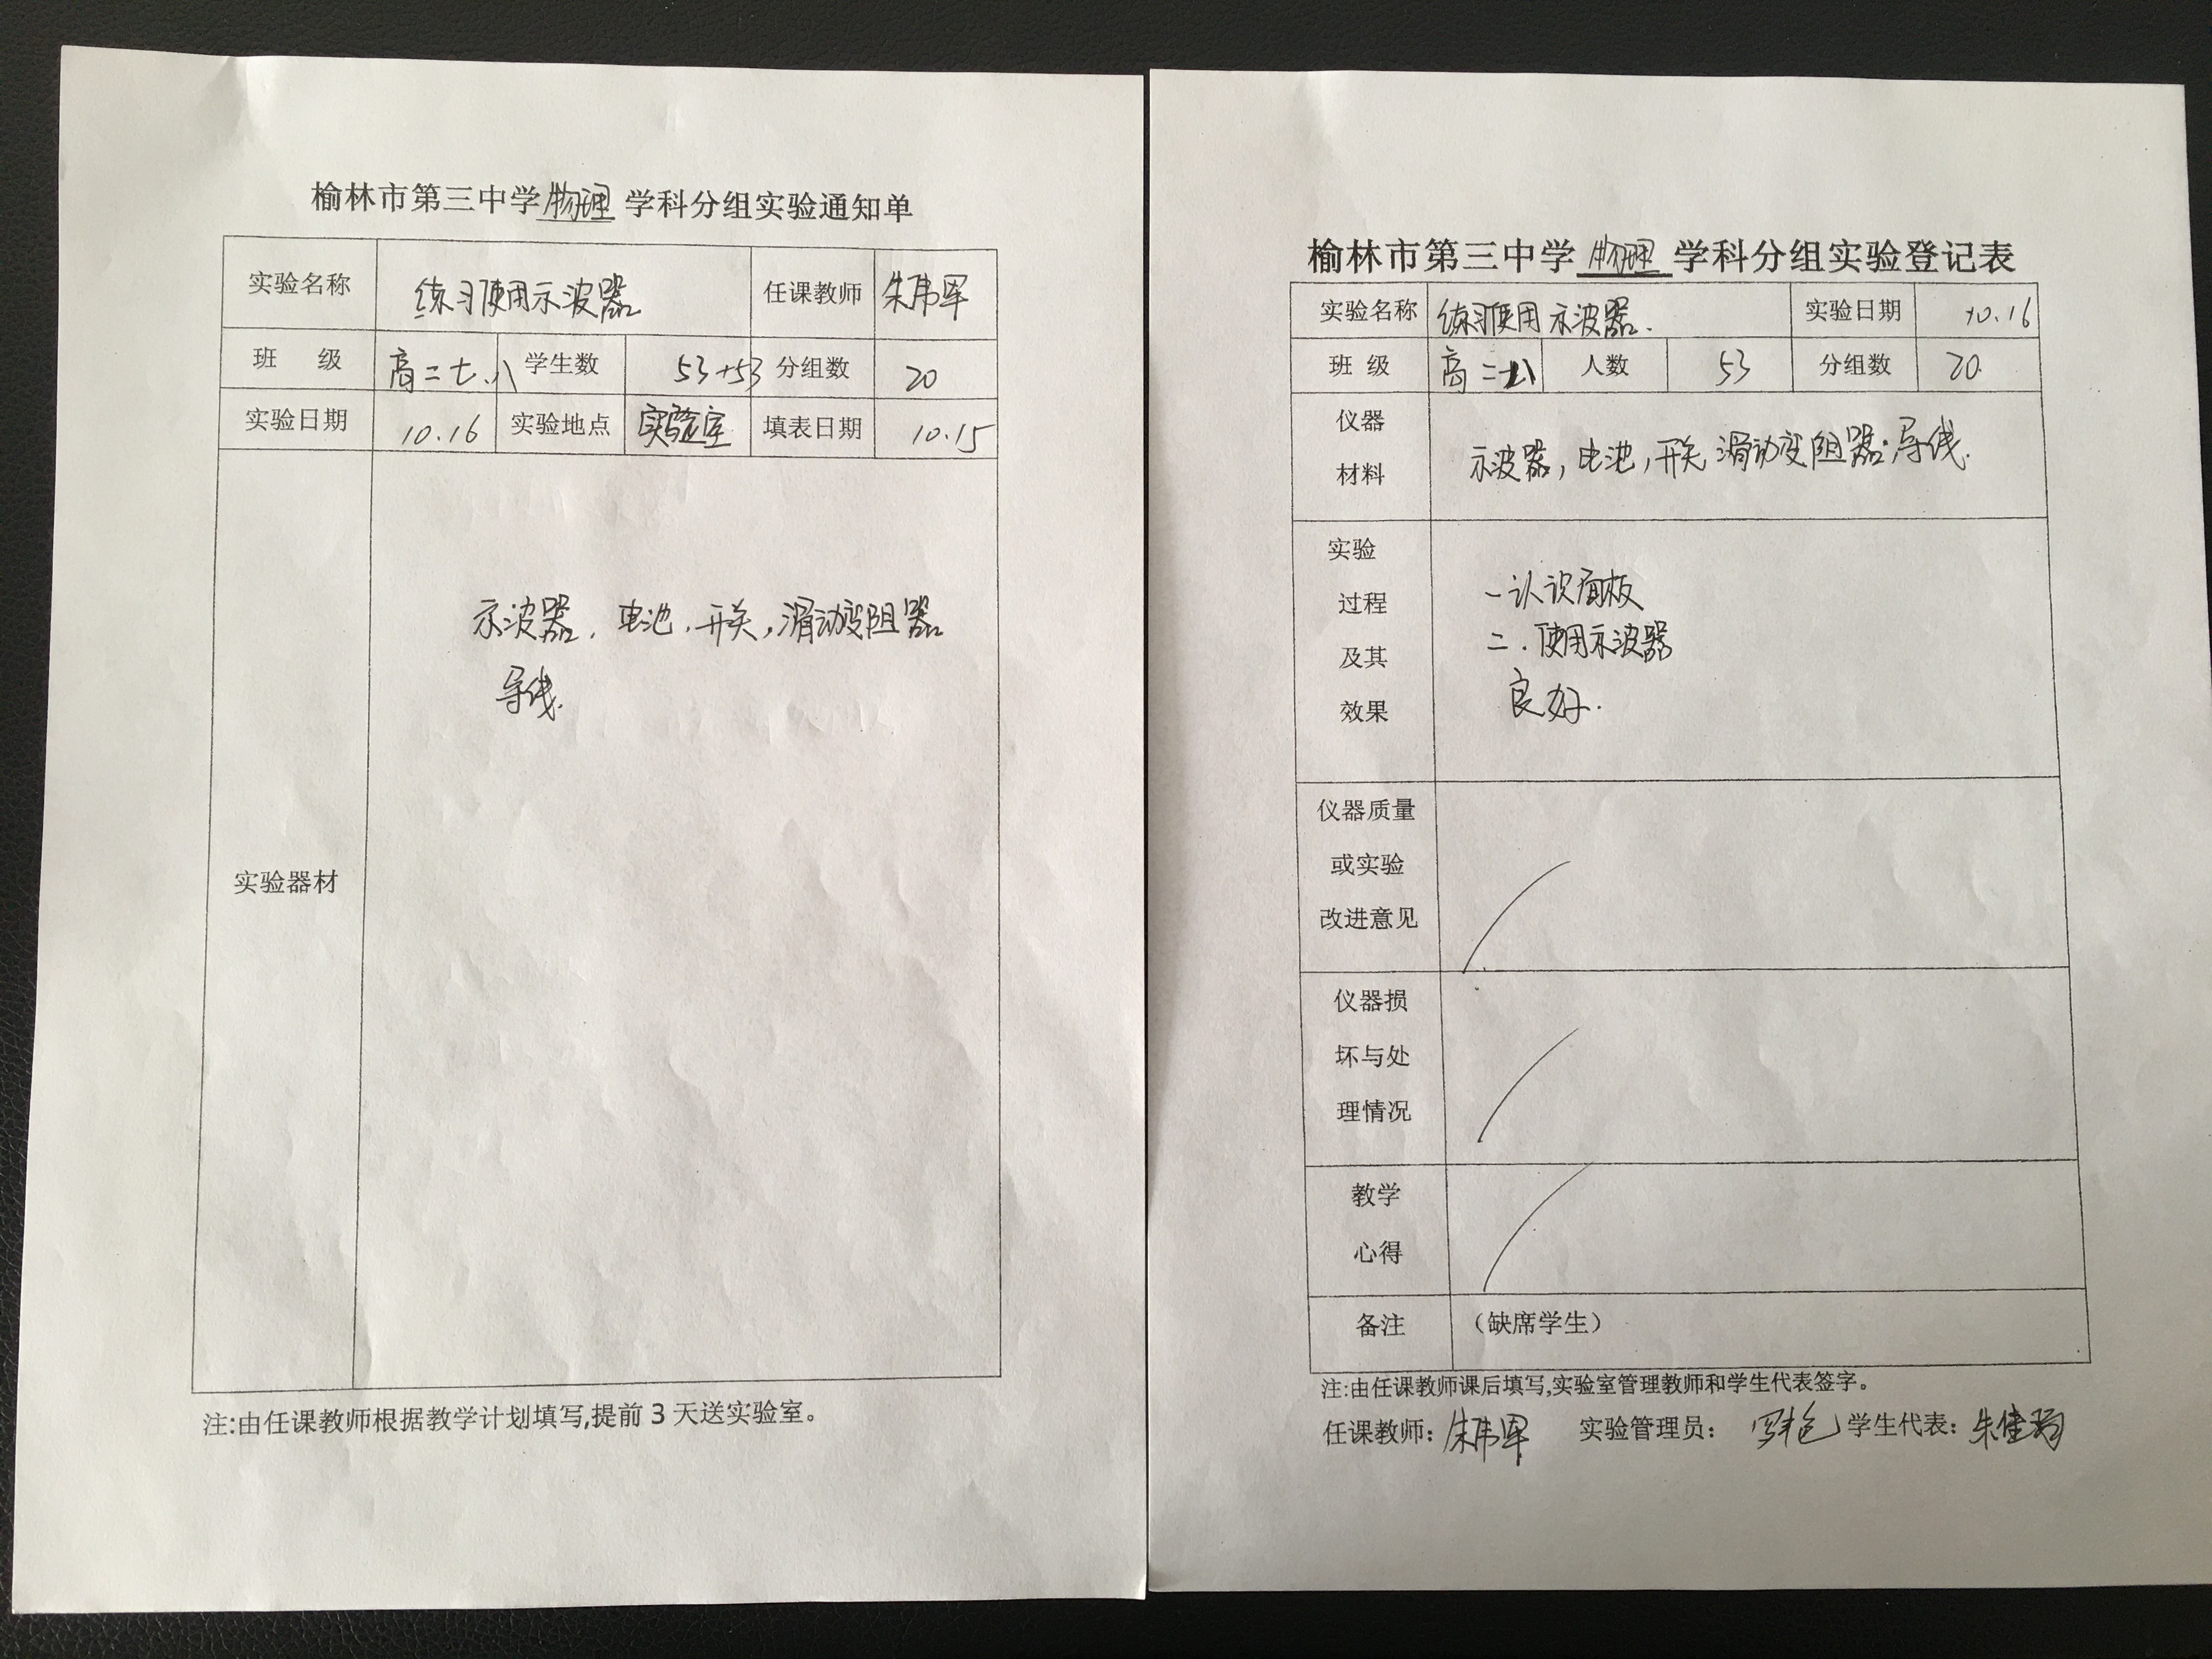 榆林市第三中学物理学科分组实验通知单
实验名称 练习使用示波器 任课教师 朱伟军
班 级 高二七、八 学生数 53+53 分组数 20
实验日期 10.16 实验地点 实验室 填表日期 10.15
实验器材
示波器、电池、开关,滑动变阻器
导线.
注:由任课教师根据教学计划填写,提前3天送实验室。
榆林市第三中学物理学科分组实验登记表
实验名称 练习使用示波器. 实验日期 10.16
班 级 高二 人数 53 分组数 20.
仪器
材料
示波器,电池,开关 滑动变阻器;导线.
实验
过程
及其
效果
一认识面板
二.使用示波器
良好.
仪器质量
或实验
改进意见
仪器损
坏与处
理情况
教学
心得
备注 (缺席学生)
注:由任课教师课后填写,实验室管理教师和学生代表签字。
任课教师: 朱伟军 实验管理员: 学生代表: 朱佳